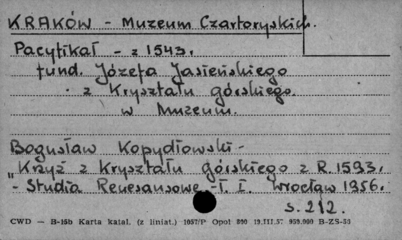 KRAKÓW - Muzeum Czartoryskich.
Pacyfikał - z 1543.
fund. Józefa Jasieńskiego
z Kryształu górskiego.
w Muzeum.
Bogusław Kopydłowski -
"Krzyż z Kryształu górskiego z R. 1593.
- Studia Renesansowe - T. I. Wrocław 1956.
s. 212.
CWD — B-15b Karta katal. (z liniat.) 1057/P Opol 890 19.III.57 959.000 B-ZS-50